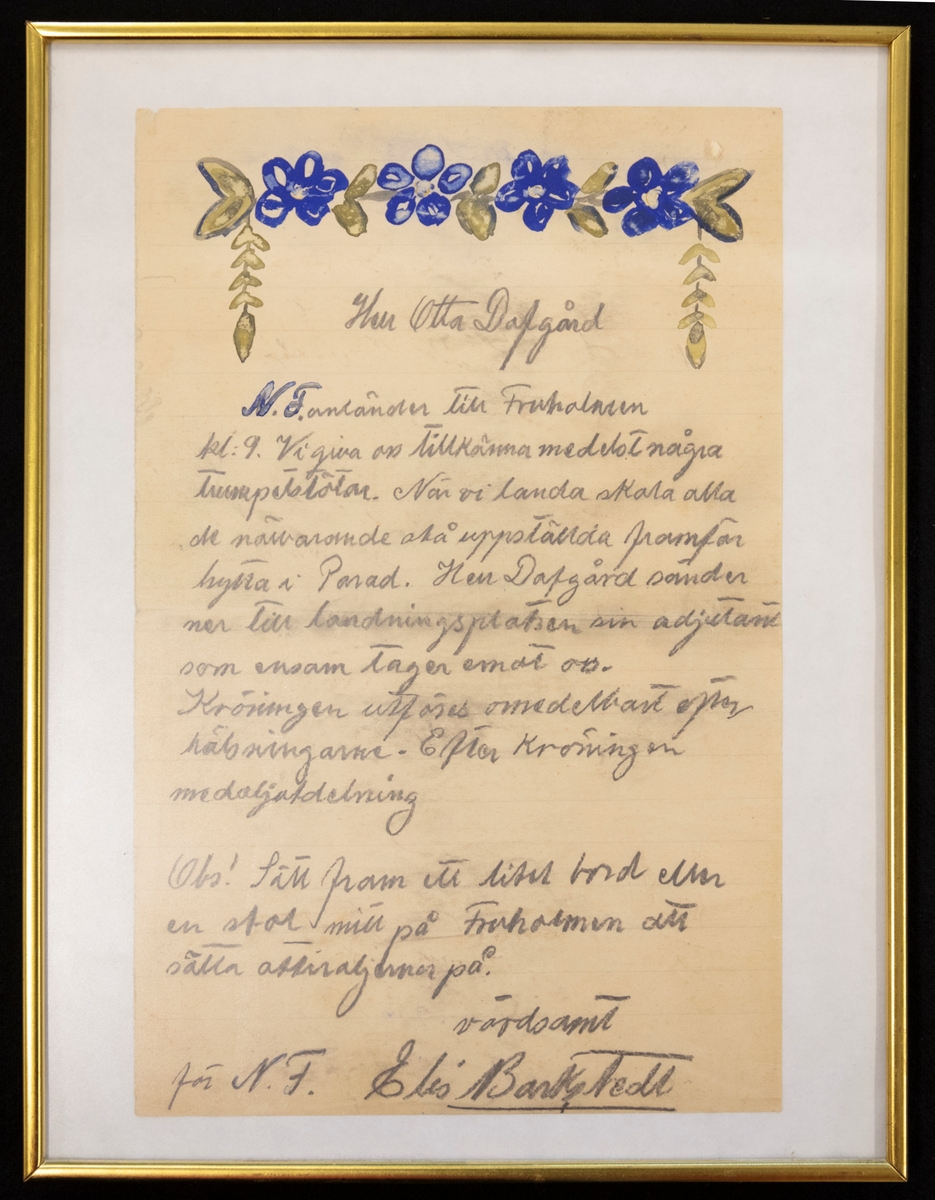 Herr Otto Dafgård
N.F. anländer till Fruholmen
kl: 9. Vi giva oss tillkänna medelst några
trumpetstötar. När vi landa skola alla
de närvarande stå uppställda framför
hytta i Parad. Herr Dafgård sänder
ner till landningsplatsen sin adjutant
som ensam tager emot oss.
Kröningen utföres omedelbart efter
hälsningarne. Efter Kröningen
medaljutdelning
Obs! Sätt fram ett litet bord eller
en stol mitt på Fruholmen att
sätta attiraljerna på.
värdsamt
för N.F. Elis Barkstedt